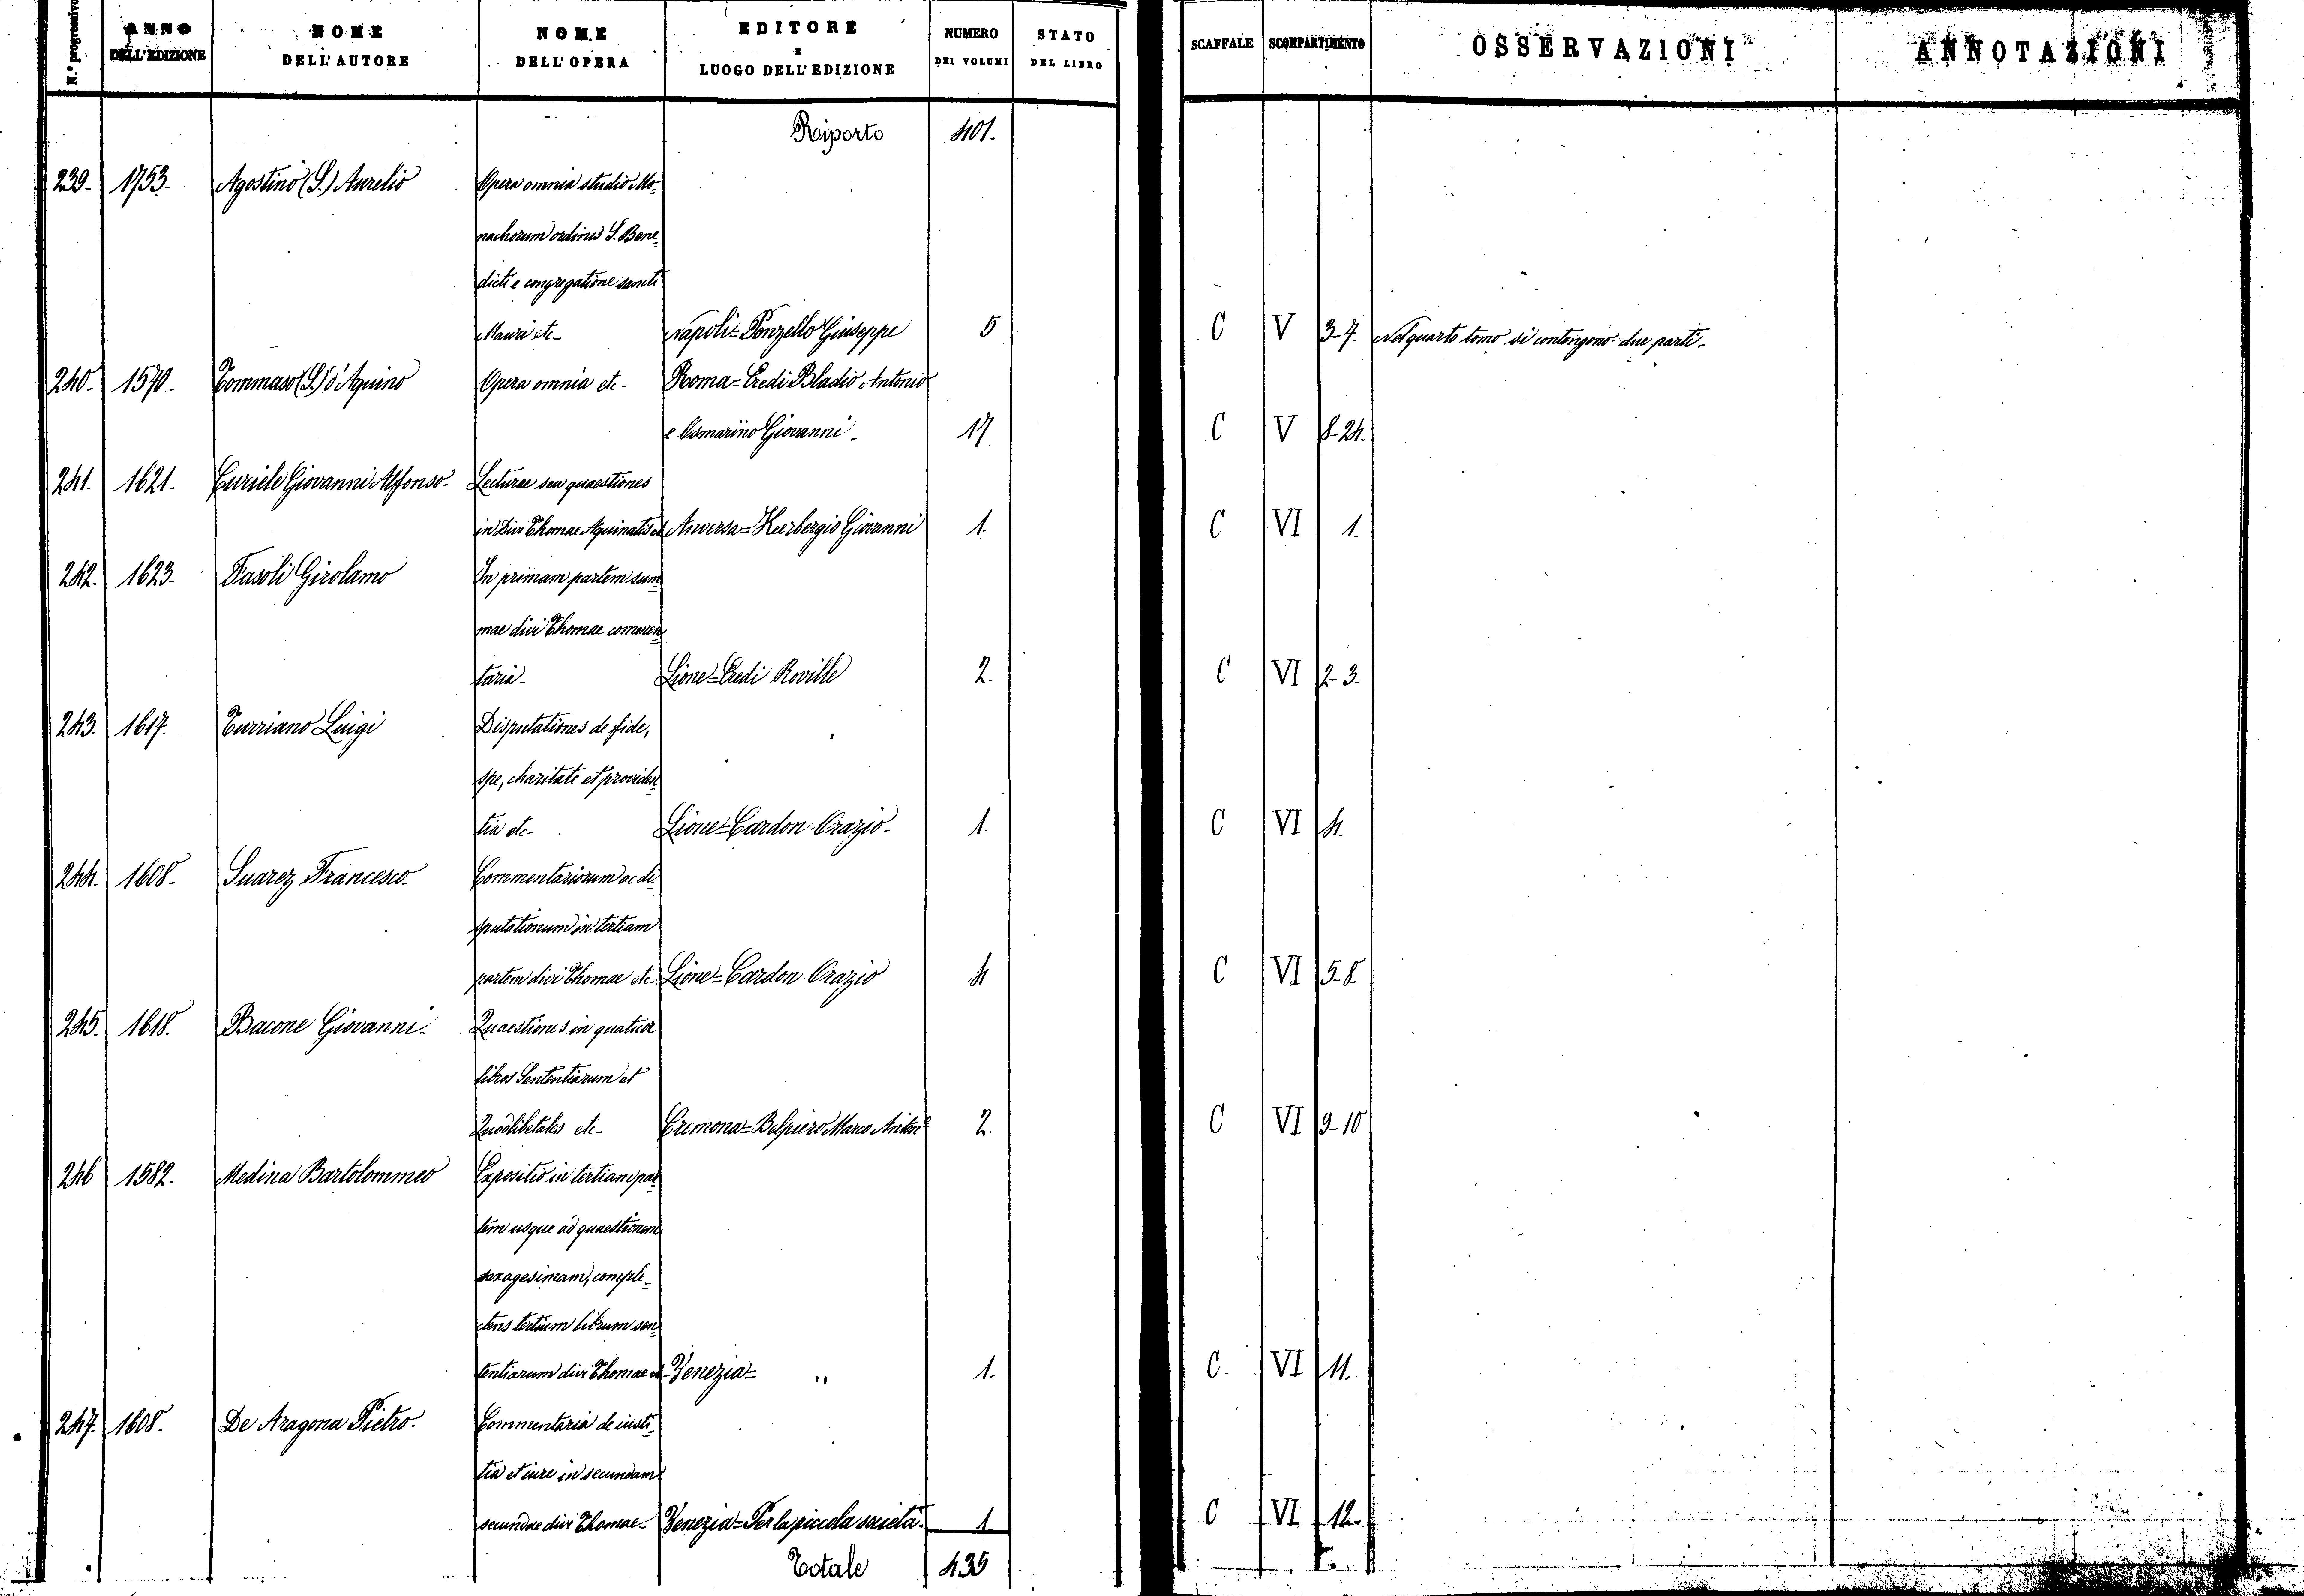 N.° progressivo ANNO DELL'EDIZIONE NOME DELL'AUTORE NOME DELL'OPERA EDITORE E LUOGO DELL'EDIZIONE NUMERO DEI VOLUMI STATO DEL LIBRO SCAFFALE SCOMPARTIMENTO OSSERVAZIONI ANNOTAZIONI
Riporto 401.
239. 1753. Agostino (S.) Aurelio Opera omnia studio Mo-
nachorum ordinis S. Bene-
dicti e congregatione sancti
Mauri etc- Napoli= Ponzello Giuseppe 5 C V 3-7. Nel quarto tomo si contengono due parti-
240. 1570. Tommaso (S.) d'Aquino Opera omnia etc- Roma= Eredi Bladio Antonio
e Osmarino Giovanni- 17 C V 8-24.
241. 1621. Curiele Giovanni Alfonso- Lecturae seu quaestiones
in Divi Thomae Aquinatis etc Anversa= Keerbergio Giovanni 1. C VI 1.
242. 1623. Fasoli Girolamo In primam partem sum-
mae divi Thomae commen-
taria- Lione= Eredi Roville 2. C VI 2-3.
243. 1617. Turriano Luigi Disputationes de fide,
spe, charitate et providen-
tia etc- Lione= Cardon Orazio- 1. C VI 4.
244. 1608. Suarez Francesco- Commentariorum ac di-
sputationum in tertiam
partem divi Thomae etc- Lione= Cardon Orazio 4 C VI 5-8
245. 1618. Bacone Giovanni- Quaestiones in quatuor
libros Sententiarum et
Quodlibetales etc- Cremona= Belpiero Marco Antonio 2. C VI 9-10
246 1582. Medina Bartolommeo Expositio in tertiam par-
tem usque ad quaestionem
sexagesimam, comple-
ctens tertium librum sen-
tentiarum divi Thomae etc- Venezia= " 1. C. VI 11.
247. 1608. De Aragona Pietro- Commentaria de iusti-
tia et iure in secundam
secundae divi Thomae- Venezia= Per la piccola società- 1. C VI 12.
Totale 435